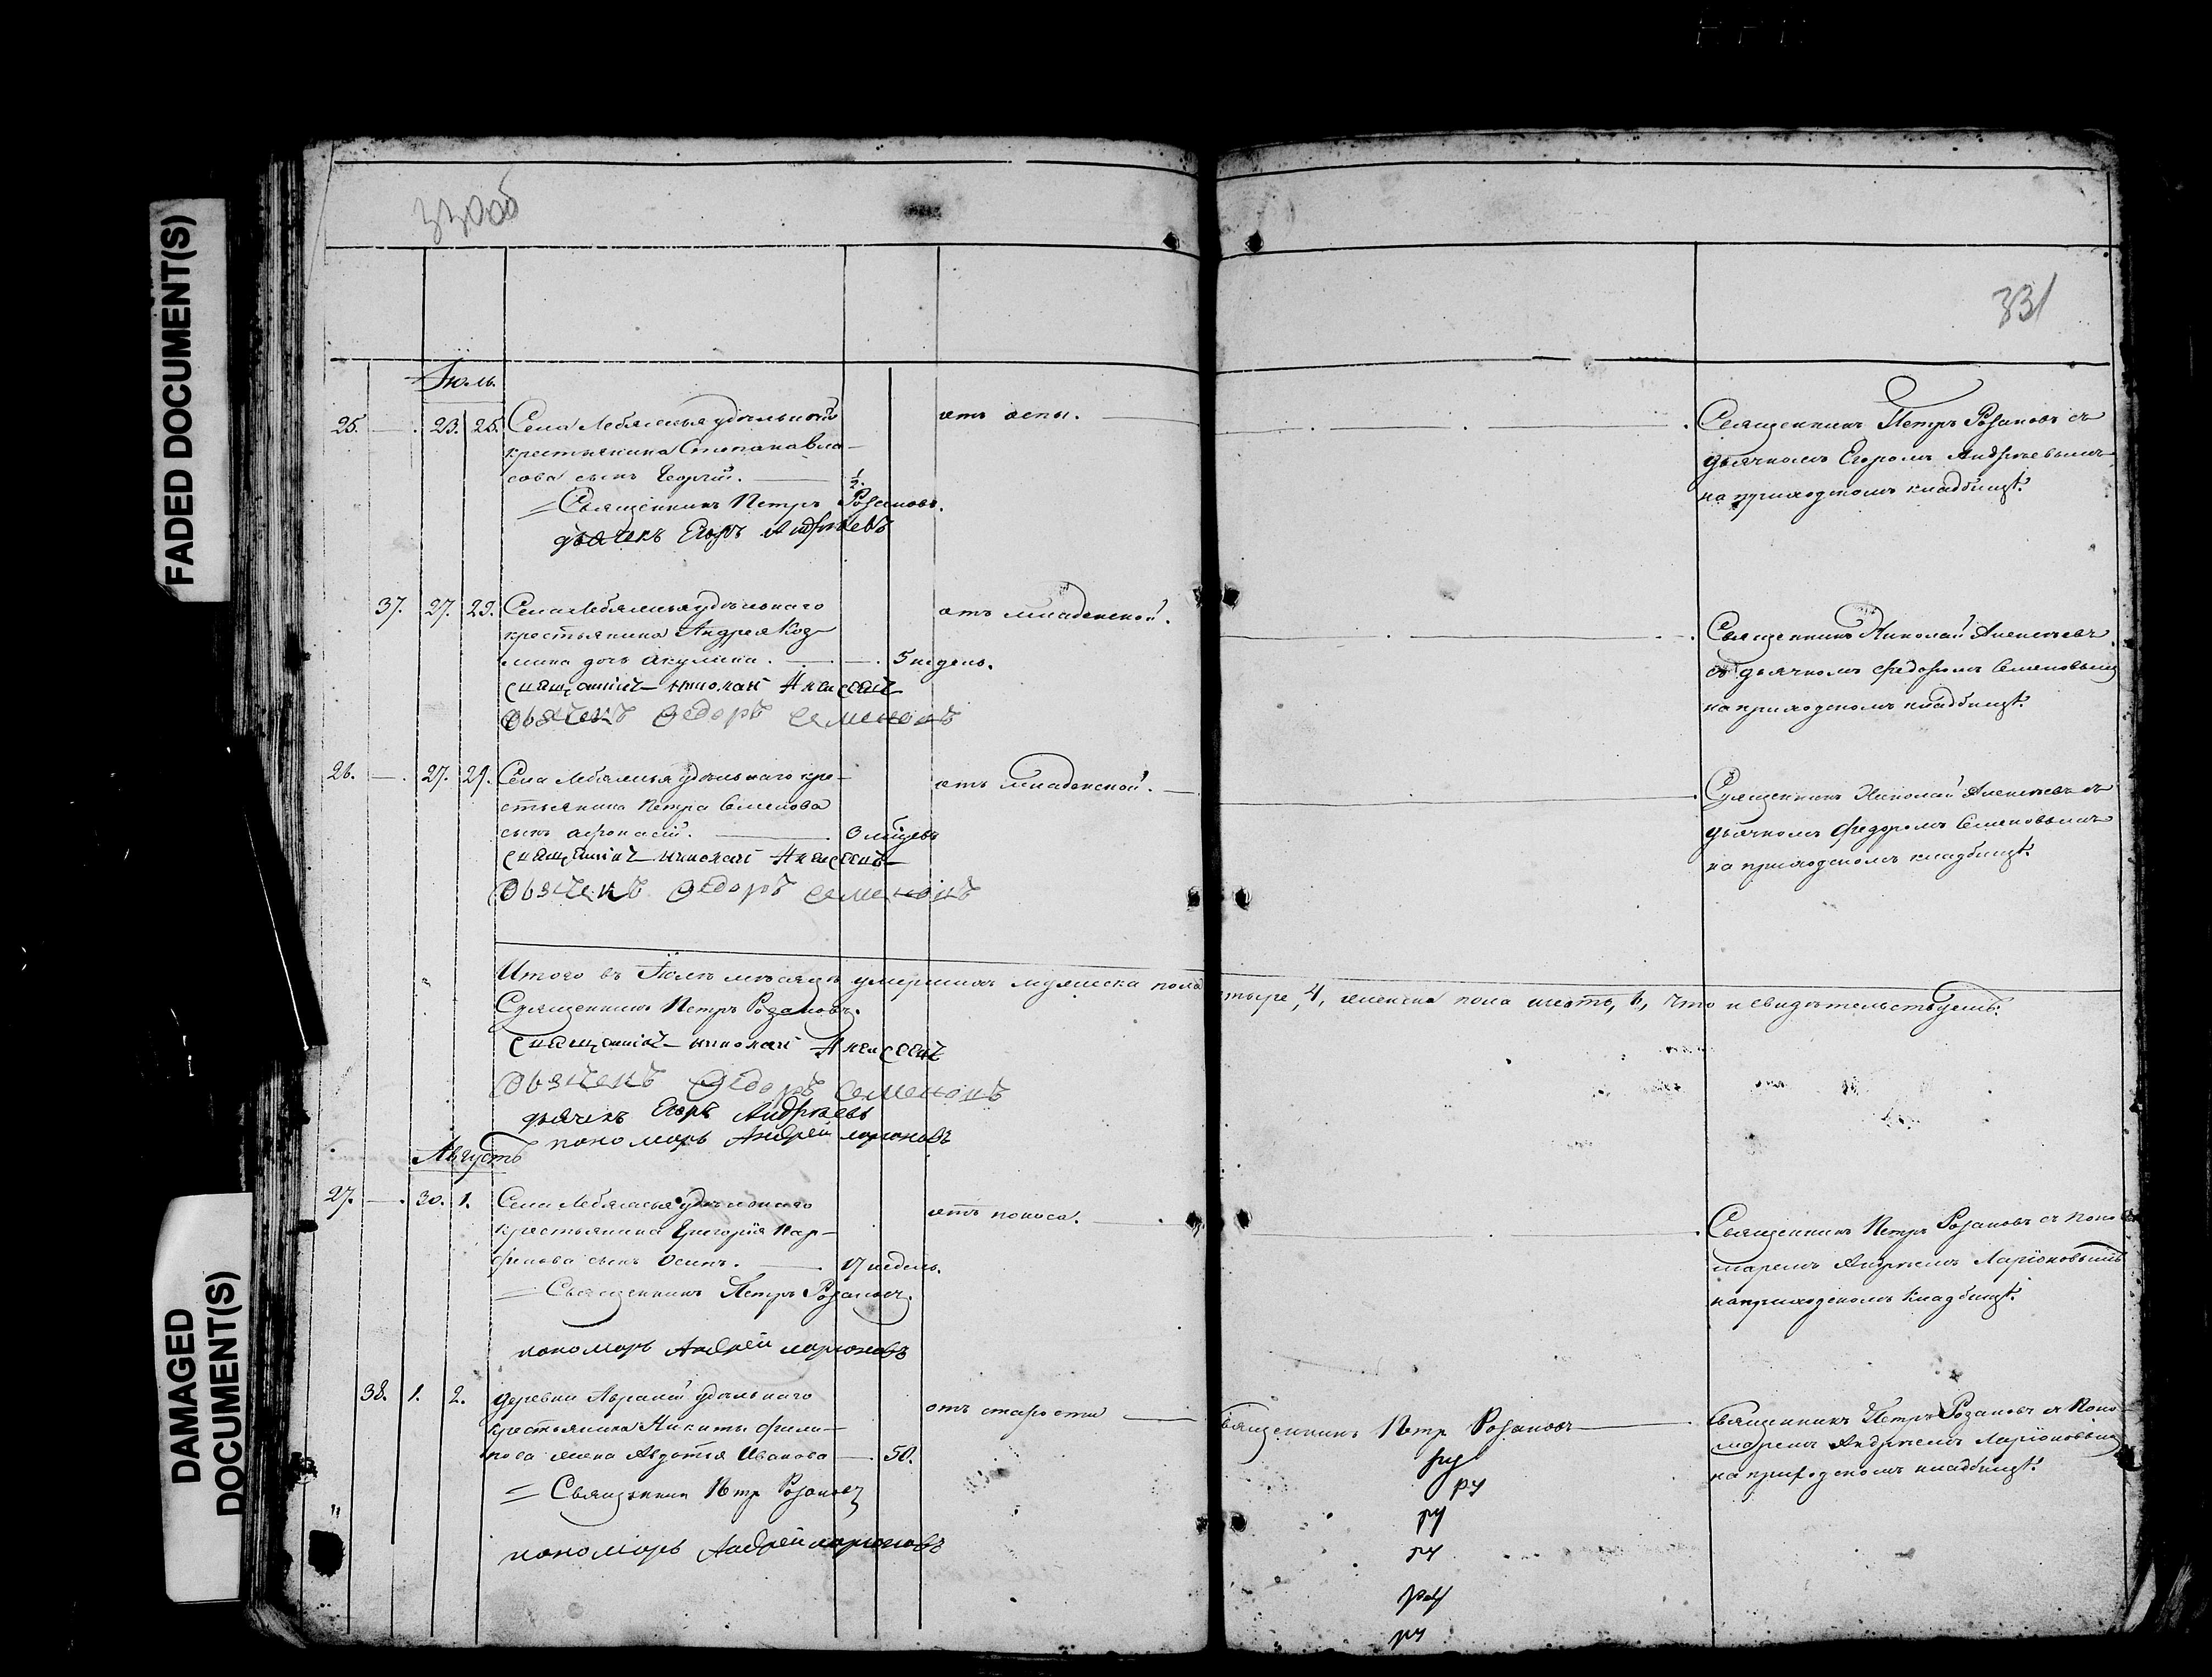 FADED DOCUMENT(S)
DAMAGED DOCUMENT(S)
330об
331
Іюль.
25. 23. 25. Села Лебяжья удѣльнаго
крестьянина Степана Вла-
сова сынъ Георгій. 1/2.
Священникъ Петръ Розановъ.
дьячекъ Егоръ Андрѣевъ
отъ оспы.
Священникъ Петръ Розановъ съ
дьячкомъ Егоромъ Андрѣевымъ
на приходскомъ кладбищѣ.
37. 27. 29. Села Лебяжья удѣльнаго
крестьянина Андрея Коз-
мина дочь Акулина. 5 недель.
священникъ Николай Алексеевъ
Дьячекъ Федоръ Семеновъ
отъ младенской.
Священникъ Николай Алексѣевъ
съ дьячкомъ Федоромъ Семеновымъ
на приходскомъ кладбищѣ.
26. 27. 29. Села Лебяжья удѣльнаго кре-
стьянина Петра Семенова
сынъ Афонасій. 3 мѣсцевъ
священникъ Николай Алексеевъ
Дьячекъ Федоръ Семеновъ
отъ младенской.
Священникъ Николай Алексѣевъ съ
дьячкомъ Федоромъ Семеновымъ
на приходскомъ кладбищѣ.
Итого въ Іюлѣ мѣсяцѣ умершихъ мужеска пола тыре, 4, женска пола шесть, 6, что и свидѣтельствуемъ.
Священникъ Петръ Розановъ.
священникъ Николай Алексеевъ
Дьячекъ Федоръ Семеновъ
дьячекъ Егоръ Андрѣевъ
пономарь Андрей Ларионовъ
Августъ
27. 30. 1. Села Лебяжья удѣльнаго
крестьянина Григорія Пар-
фенова сынъ Осипъ. 17 недель.
Священникъ Петръ Розановъ.
пономарь Андрей Ларионовъ
отъ поноса.
Священникъ Петръ Розановъ съ поно
маремъ Андрѣемъ Ларіоновымъ
на приходскомъ кладбищѣ.
38. 1. 2. деревни Авралей удѣльнаго
крестьянина Никиты Фили-
пова жена Авдотья Иванова 50.
Священникъ Петр Розановъ
пономарь Андрей Ларионовъ
отъ старости
вященникъ Петр Розановъ
ру
ру
ру
ру
ру
ру
Священникъ Петръ Розановъ съ Поно
маремъ Андрѣемъ Ларіоновымъ
на приходскомъ кладбищѣ.